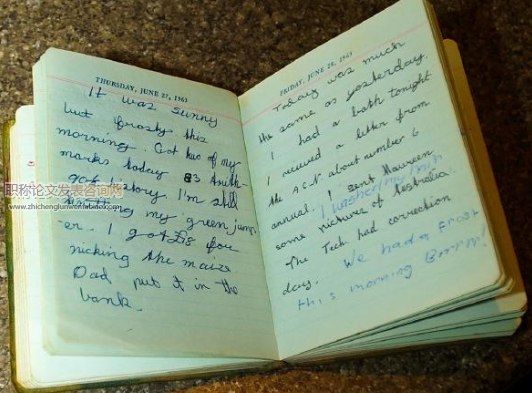 THURSDAY, JUNE 27, 1963
It was sunny
but frosty this
morning. Got two of my
marks today 83 Arith
history. I'm still
knitting my green jump
er. I got £8 for
picking the maize
Dad put it in the
bank.
FRIDAY, JUNE 28, 1963
Today was much
the same as yesterday.
I had a bath tonight
I recieved a letter from
the about number 6
annual. I sent Maureen
I washed my hair
some pictures of Australia
The Tech had correction
day. We had a frost
this morning Brrrr!
职称论文发表咨询网
www.zhichenglunwenfabiao.com